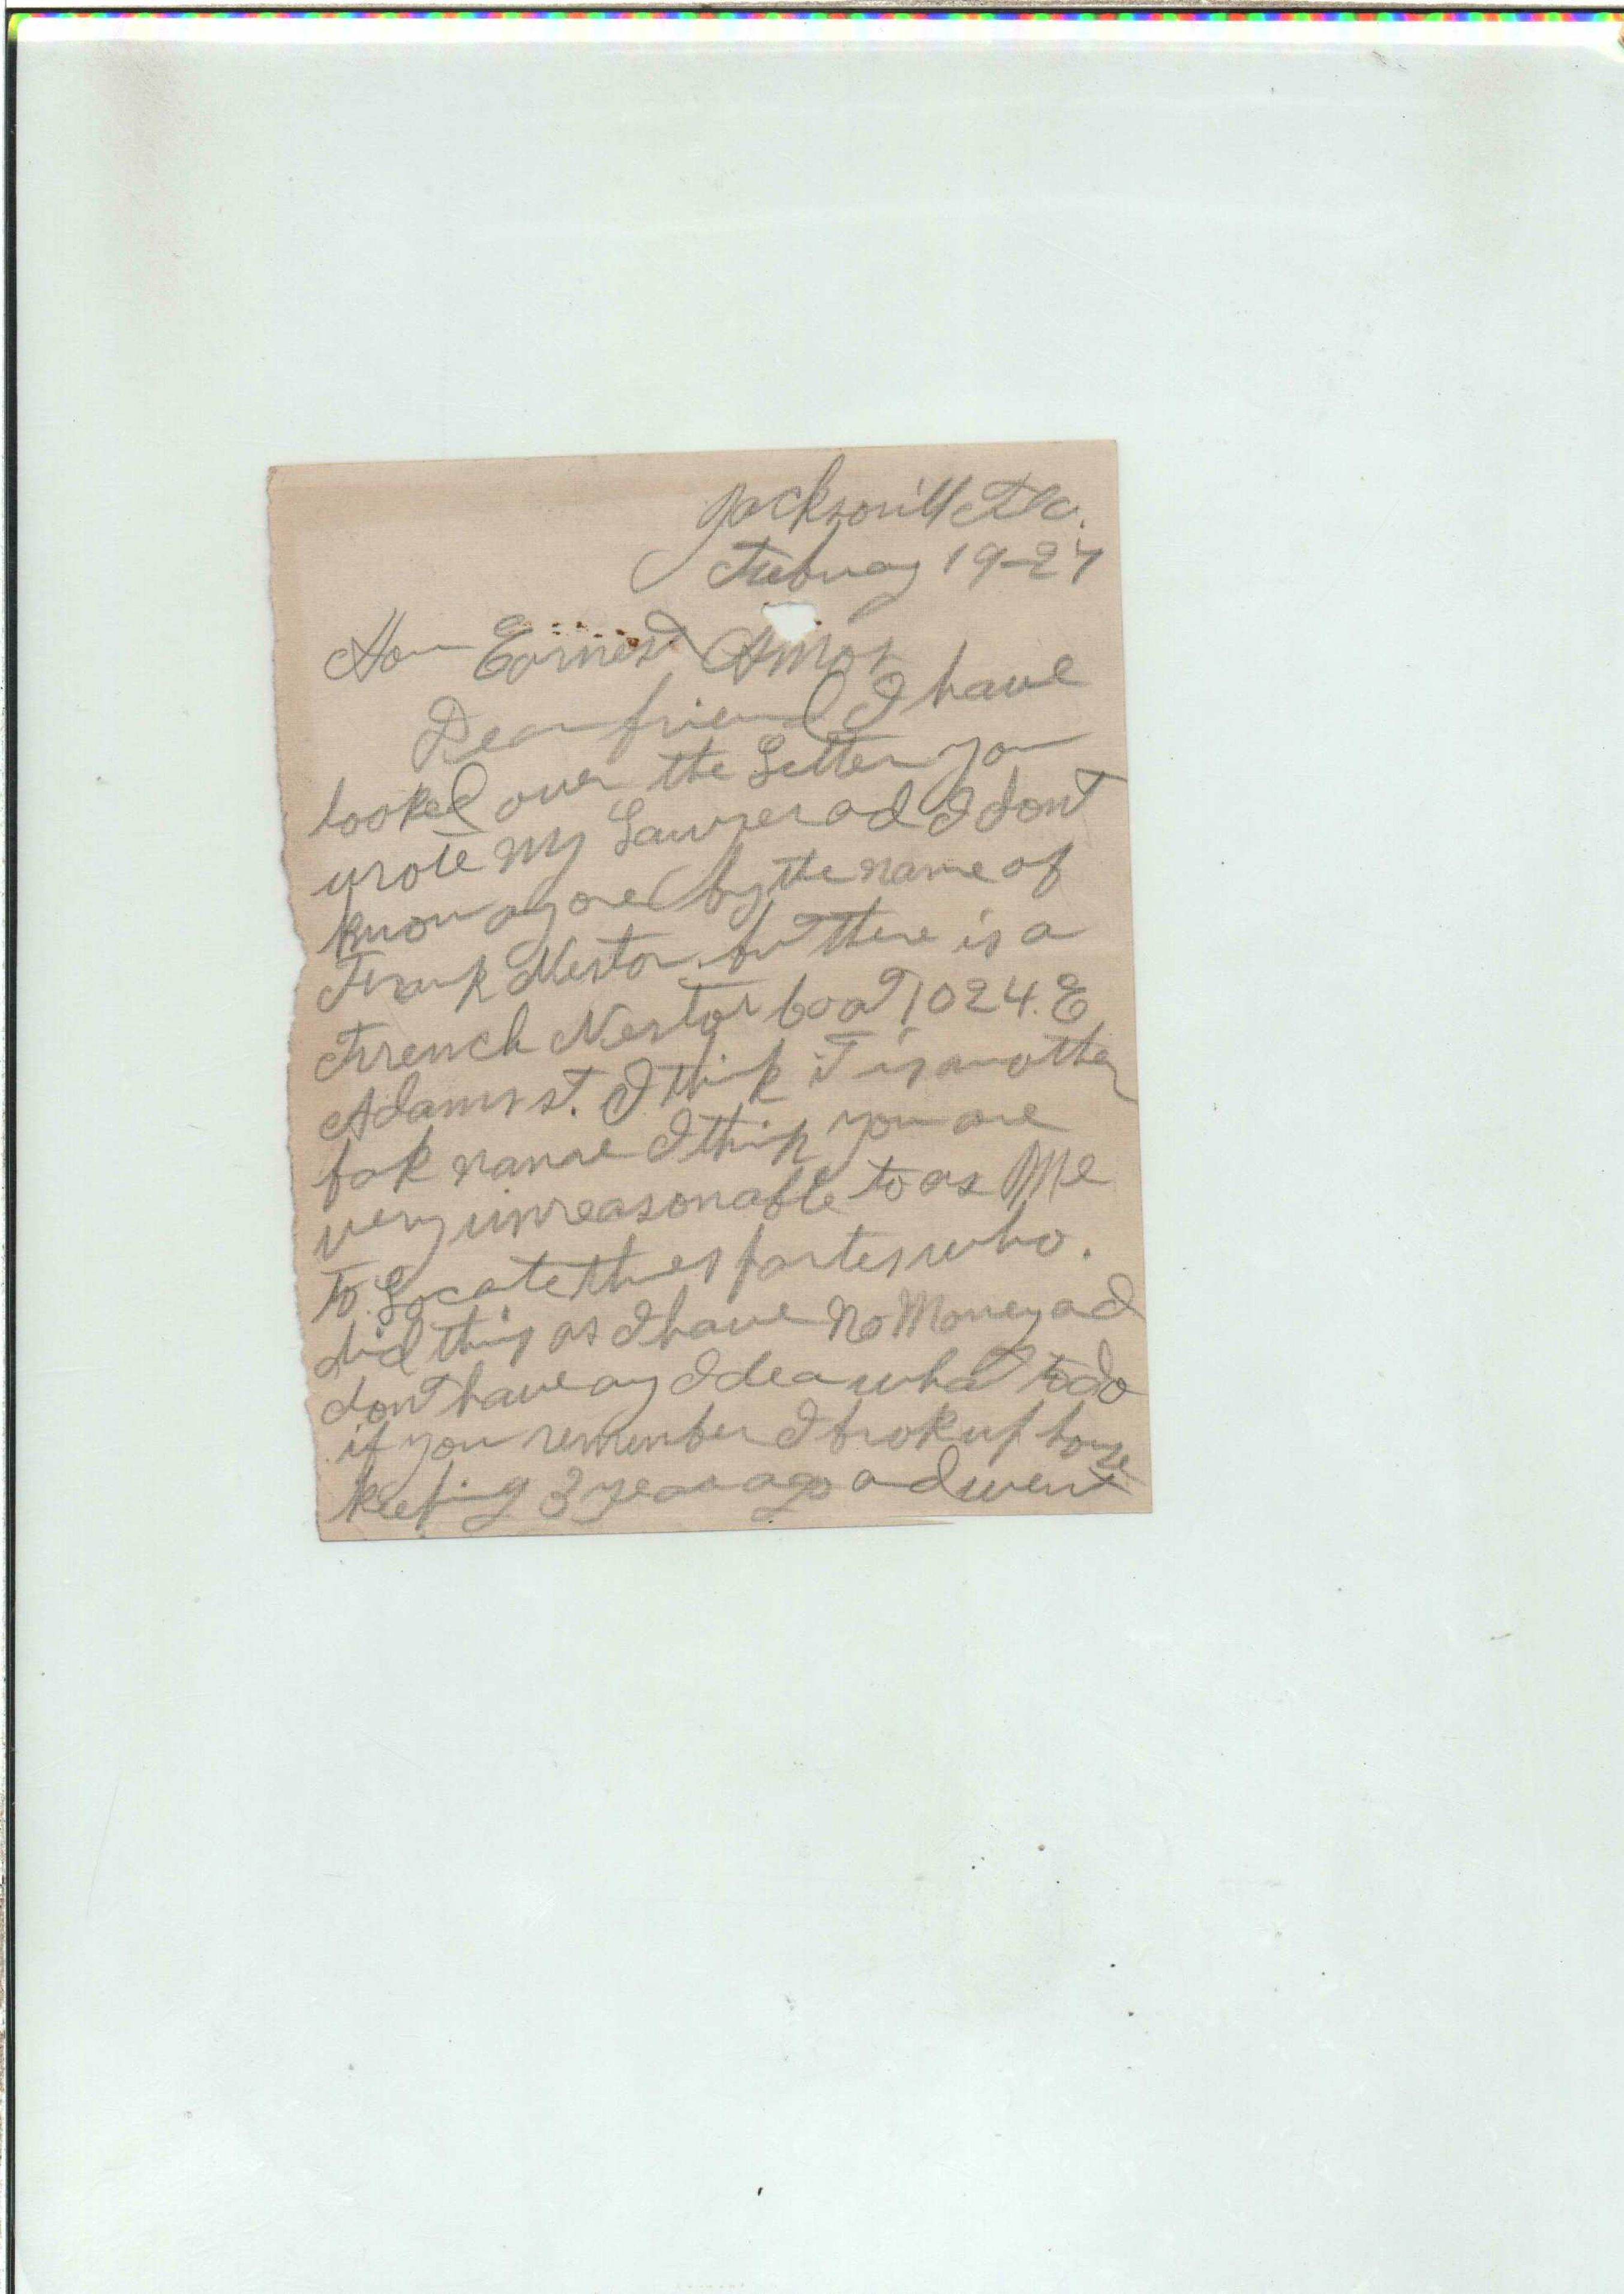 Jacksonvill Fla.
Febuay 19-27
Hon Earnest Amos
Dear friend I have
looked over the Letter you
wrote my Lawyer ad I dont
know ayone by the name of
Frank Nestor. but there is a
French Nestor at 1024. E
Adams st. I think it is another
fak name I think you are
very unreasonable to as Me
to Locate thies partes who.
did this as I have No Money ad
dont have ay Idea what to do
if you remember I brok up house
keeping 3 year ago and went